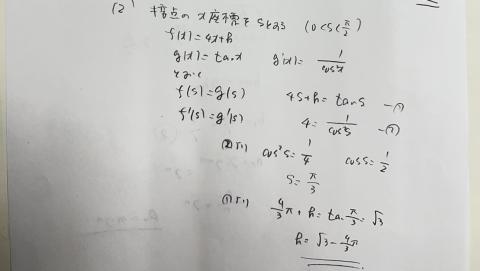 (2) 接点のx座標をsとする (0<s<π/2)
f(x)=4x+h
g(x)=tanx g'(x)=1/cos²x
とおく
f(s)=g(s) 4s+h=tans −①
f'(s)=g'(s) 4=1/cos²s −②
②より cos²s=1/4 coss=1/2
s=π/3
①より 4/3π+h=tanπ/3=√3
h=√3−4/3π